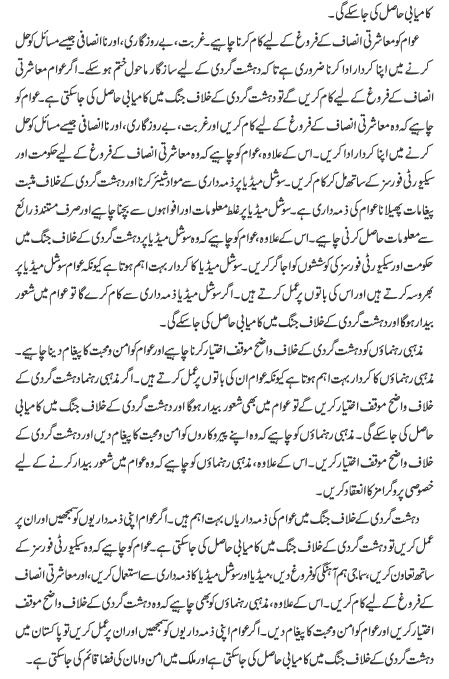 کامیابی حاصل کی جا سکے گی۔
عوام کو معاشرتی انصاف کے فروغ کے لیے کام کرنا چاہیے۔ غربت، بے روزگاری، اور ناانصافی جیسے مسائل کو حل
کرنے میں اپنا کردار ادا کرنا ضروری ہے تاکہ دہشت گردی کے لیے سازگار ماحول ختم ہو سکے۔ اگر عوام معاشرتی
انصاف کے فروغ کے لیے کام کریں گے تو دہشت گردی کے خلاف جنگ میں کامیابی حاصل کی جا سکتی ہے۔ عوام کو
چاہیے کہ وہ معاشرتی انصاف کے فروغ کے لیے کام کریں اور غربت، بے روزگاری، اور ناانصافی جیسے مسائل کو حل
کرنے میں اپنا کردار ادا کریں۔ اس کے علاوہ، عوام کو چاہیے کہ وہ معاشرتی انصاف کے فروغ کے لیے حکومت اور
سیکیورٹی فورسز کے ساتھ مل کر کام کریں۔ سوشل میڈیا پر ذمہ داری سے مواد شیئر کرنا اور دہشت گردی کے خلاف مثبت
پیغامات پھیلانا عوام کی ذمہ داری ہے۔ سوشل میڈیا پر غلط معلومات اور افواہوں سے بچنا چاہیے اور صرف مستند ذرائع
سے معلومات حاصل کرنی چاہیے۔ اس کے علاوہ، عوام کو چاہیے کہ وہ سوشل میڈیا پر دہشت گردی کے خلاف جنگ میں
حکومت اور سیکیورٹی فورسز کی کوششوں کو اجاگر کریں۔ سوشل میڈیا کا کردار بہت اہم ہوتا ہے کیونکہ عوام سوشل میڈیا پر
بھروسہ کرتے ہیں اور اس کی باتوں پر عمل کرتے ہیں۔ اگر سوشل میڈیا ذمہ داری سے کام کرے گا تو عوام میں شعور
بیدار ہوگا اور دہشت گردی کے خلاف جنگ میں کامیابی حاصل کی جا سکے گی۔
مذہبی رہنماؤں کو دہشت گردی کے خلاف واضح موقف اختیار کرنا چاہیے اور عوام کو امن و محبت کا پیغام دینا چاہیے۔
مذہبی رہنماؤں کا کردار بہت اہم ہوتا ہے کیونکہ عوام ان کی باتوں پر عمل کرتے ہیں۔ اگر مذہبی رہنما دہشت گردی کے
خلاف واضح موقف اختیار کریں گے تو عوام میں بھی شعور بیدار ہوگا اور دہشت گردی کے خلاف جنگ میں کامیابی
حاصل کی جا سکے گی۔ مذہبی رہنماؤں کو چاہیے کہ وہ اپنے پیروکاروں کو امن و محبت کا پیغام دیں اور دہشت گردی کے
خلاف واضح موقف اختیار کریں۔ اس کے علاوہ، مذہبی رہنماؤں کو چاہیے کہ وہ عوام میں شعور بیدار کرنے کے لیے
خصوصی پروگرامز کا انعقاد کریں۔
دہشت گردی کے خلاف جنگ میں عوام کی ذمہ داریاں بہت اہم ہیں۔ اگر عوام اپنی ذمہ داریوں کو سمجھیں اور ان پر
عمل کریں تو دہشت گردی کے خلاف جنگ میں کامیابی حاصل کی جا سکتی ہے۔ عوام کو چاہیے کہ وہ سیکیورٹی فورسز کے
ساتھ تعاون کریں، سماجی ہم آہنگی کو فروغ دیں، میڈیا اور سوشل میڈیا کا ذمہ داری سے استعمال کریں، اور معاشرتی انصاف
کے فروغ کے لیے کام کریں۔ اس کے علاوہ، مذہبی رہنماؤں کو بھی چاہیے کہ وہ دہشت گردی کے خلاف واضح موقف
اختیار کریں اور عوام کو امن و محبت کا پیغام دیں۔ اگر عوام اپنی ذمہ داریوں کو سمجھیں اور ان پر عمل کریں تو پاکستان میں
دہشت گردی کے خلاف جنگ میں کامیابی حاصل کی جا سکتی ہے اور ملک میں امن و امان کی فضا قائم کی جا سکتی ہے۔